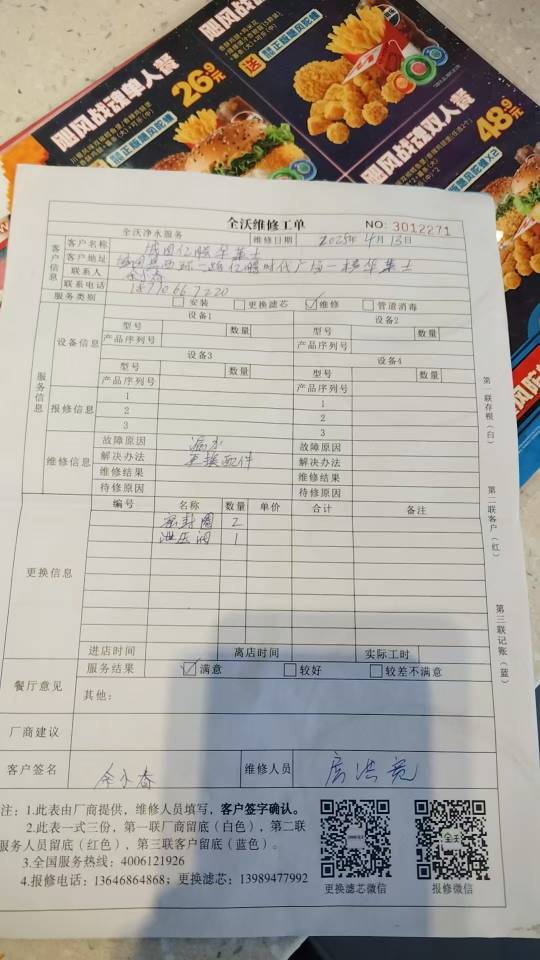 飓风战魂单人餐
26.9元
送
正版飓风陀螺
飓风战魂双人餐
48.9元
正版飓风陀螺X2
全沃维修工单
NO: 3012271
全沃净水服务
维修日期
2025年4月13日
客户信息
客户名称
客户地址
时代广场一楼华莱士
联系人
联系电话
服务类别
安装
更换滤芯
维修
管道消毒
服务信息
设备信息
设备1
设备2
型号
数量
型号
数量
产品序列号
产品序列号
设备3
设备4
型号
数量
型号
数量
产品序列号
产品序列号
报修信息
1
1
2
2
3
3
维修信息
故障原因
漏水
故障原因
解决办法
更换配件
解决办法
维修结果
维修结果
待修原因
待修原因
更换信息
编号
名称
数量
单价
合计
备注
密封圈
2
泄压阀
1
进店时间
离店时间
实际工时
餐厅意见
服务结果
满意
较好
较差不满意
其他:
厂商建议
客户签名
余小春
维修人员
第一联存根（白）
第二联客户（红）
第三联记账（蓝）
注: 1.此表由厂商提供，维修人员填写，客户签字确认。
2.此表一式三份，第一联厂商留底（白色），第二联
服务人员留底（红色），第三联客户留底（蓝色）。
3.全国服务热线: 4006121926
4.报修电话: 13646864868; 更换滤芯: 13989477992
更换滤芯微信
报修微信
全沃